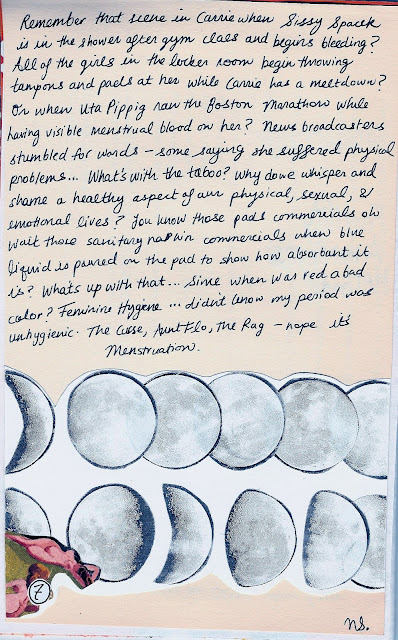 Remember that scene in Carrie when Sissy Spacek
is in the shower after gym class and begins bleeding?
All of the girls in the locker room begin throwing
tampons and pads at her while Carrie has a meltdown?
Or when Uta Pippig ran the Boston Marathon while
having visible menstrual blood on her? News broadcasters
stumbled for words - some saying she suffered physical
problems... What's with the taboo? Why do we whisper and
shame a healthy aspect of our physical, sexual, &
emotional lives? You know those pads commercials oh
wait those sanitary napkin commercials when blue
liquid is poured on the pad to show how absorbant it
is? Whats up with that... Since when was red a bad
color? Feminine Hygiene... didn't know my period was
unhygienic. The Curse, Aunt Flo, The Rag - nope it's
Menstruation.
7
NS.